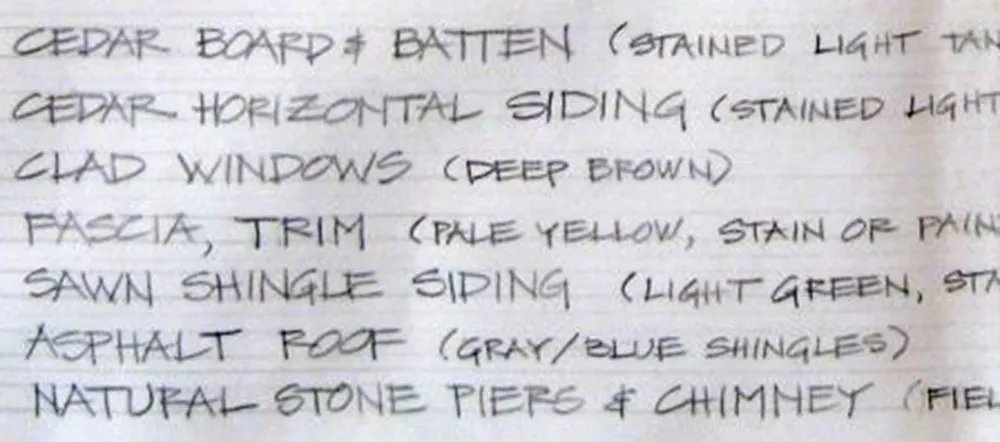 CEDAR BOARD & BATTEN (STAINED LIGHT TAN
CEDAR HORIZONTAL SIDING (STAINED LIGHT
CLAD WINDOWS (DEEP BROWN)
FASCIA, TRIM (PALE YELLOW, STAIN OR PAIN
SAWN SHINGLE SIDING (LIGHT GREEN, STA
ASPHALT ROOF (GRAY/BLUE SHINGLES)
NATURAL STONE PIERS & CHIMNEY (FIEL